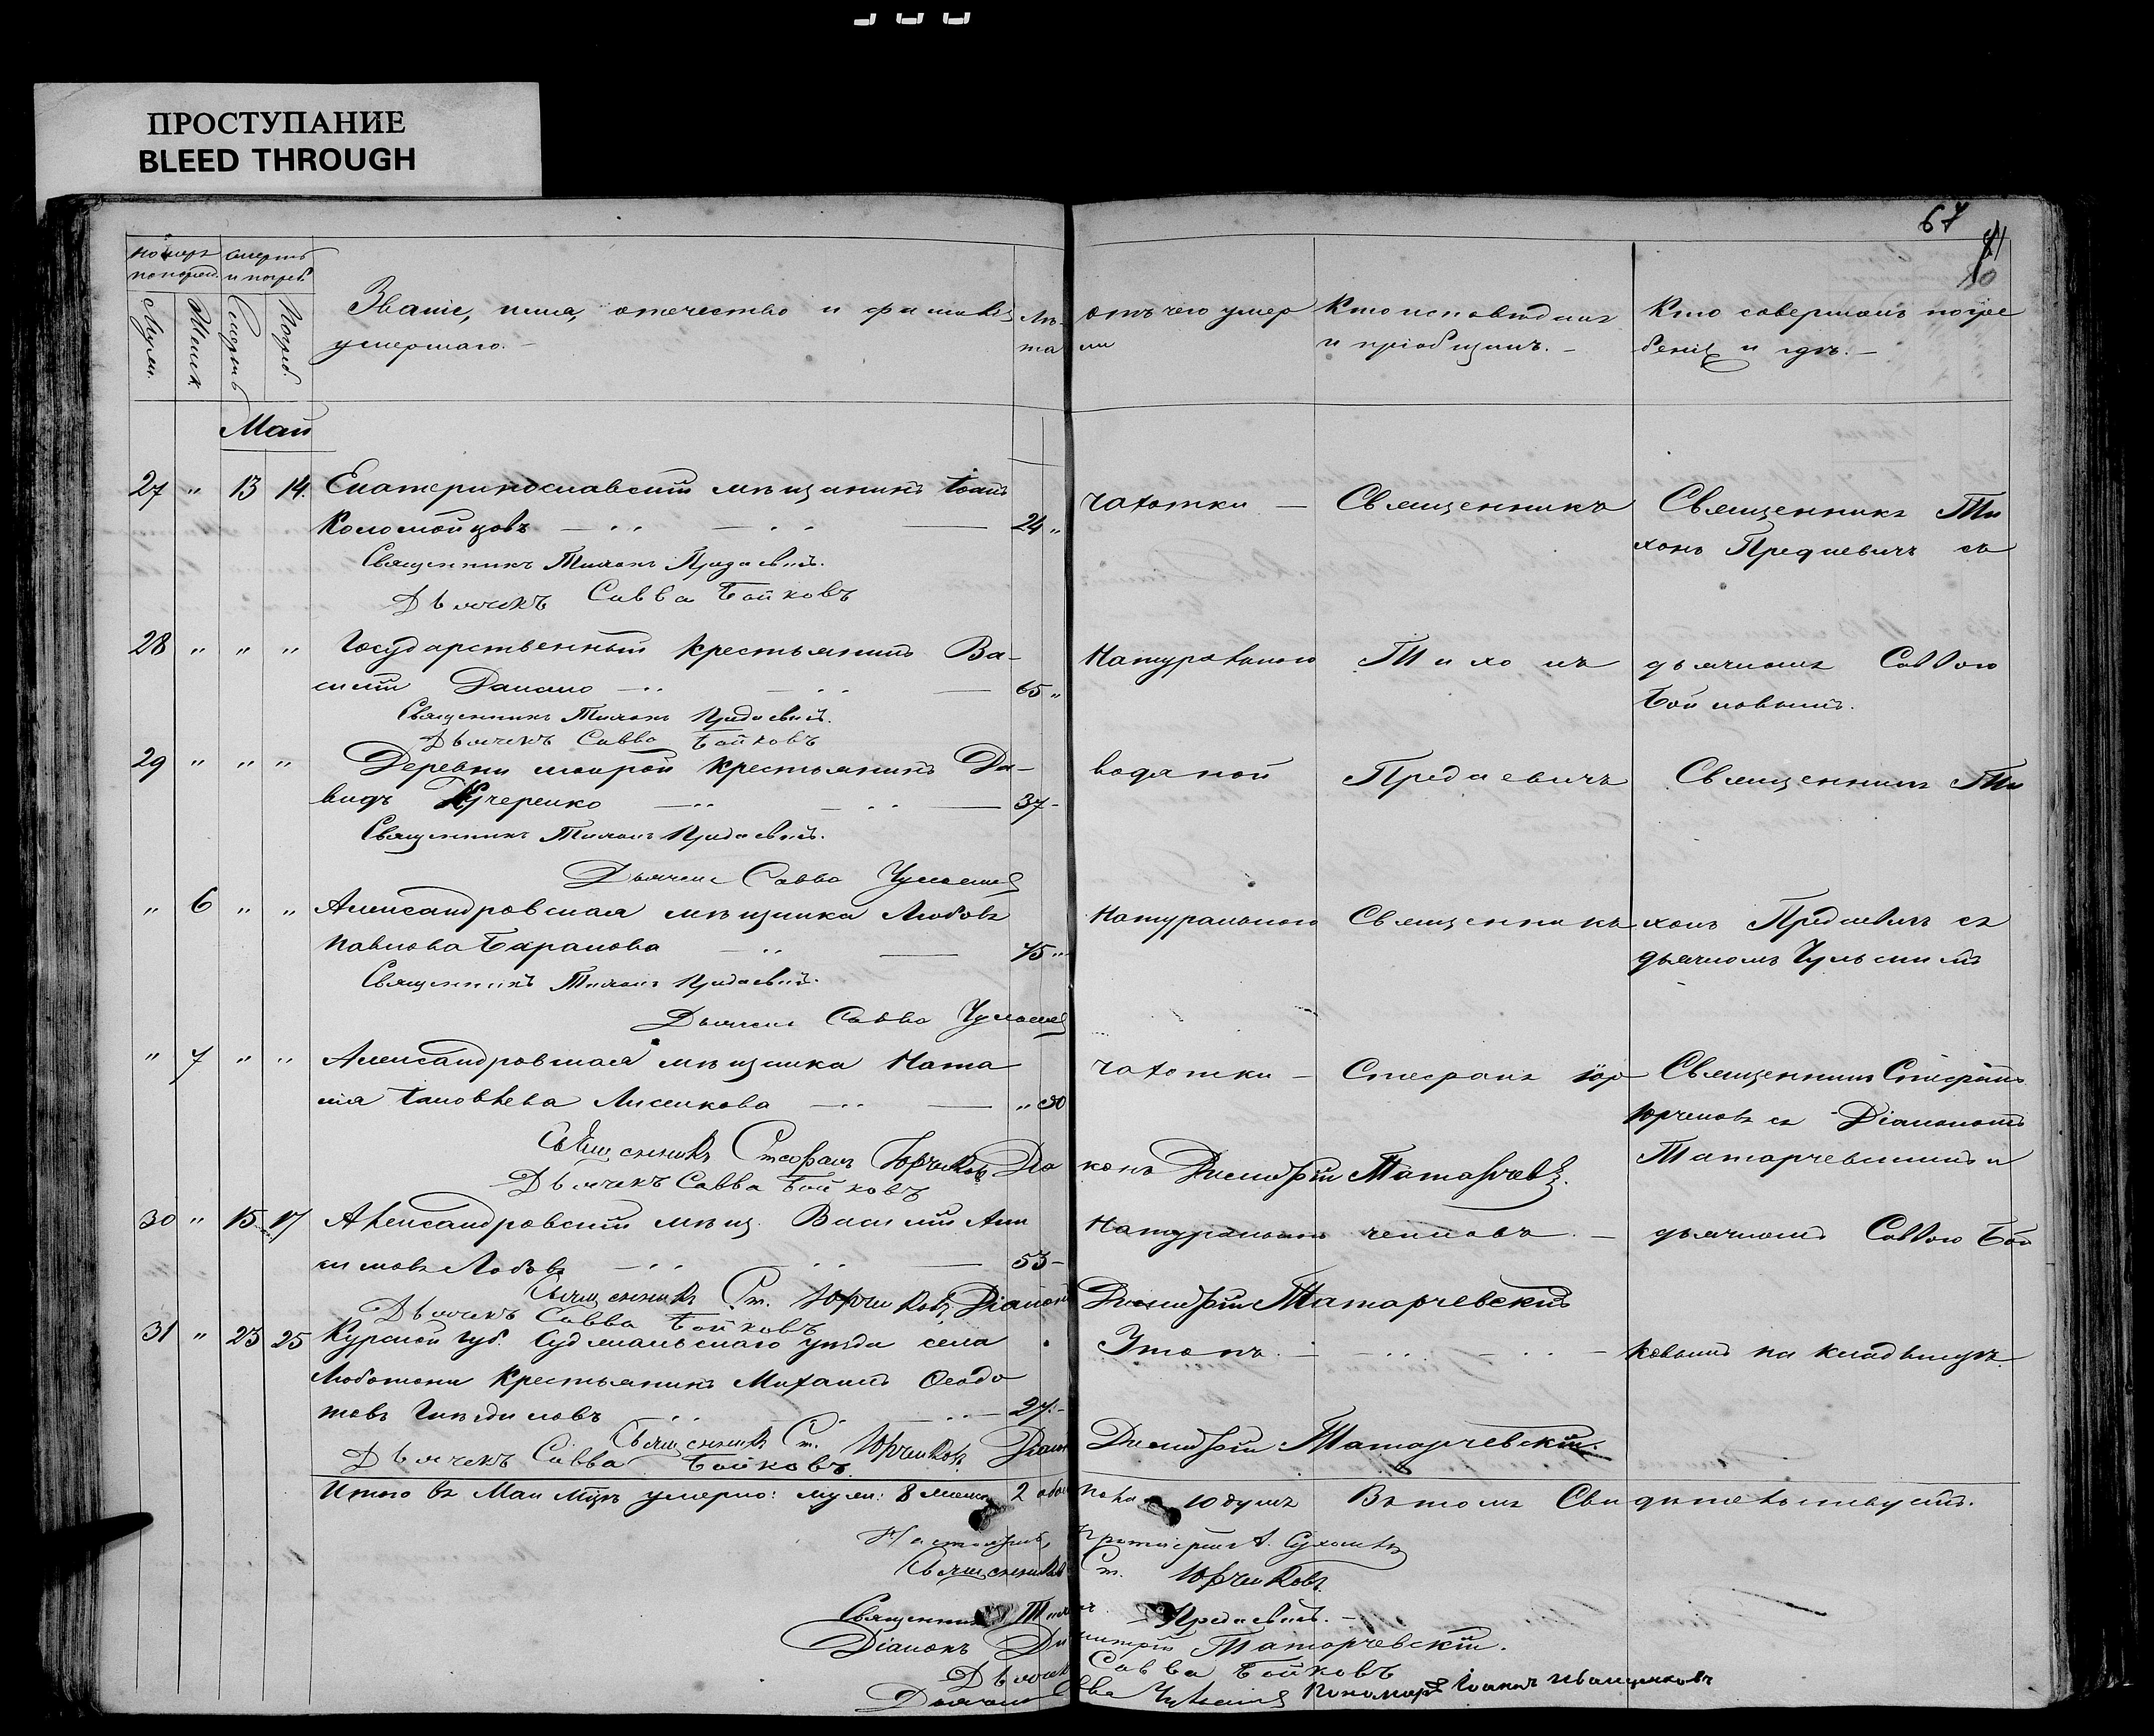 ПРОСТУПАНИЕ
BLEED THROUGH
67
номеръ
по поряд.
смерть
и погреб.
Муж.
Женск
Смерть
Погреб.
Званіе, имя, отечество и фамилія
умершаго. —
Лѣ-
та
отъ чего умер
ли
Кто исповѣдалъ
и пріобщилъ. —
Кто совершалъ погре
беніе и гдѣ. —
Май
27 " 13 14. Екатеринославскій мѣщанинъ Іоанъ
Коломойцовъ 24 "
чахотки — Священникъ Священникъ Ти
хонъ Предаевичъ съ
Священникъ Тихонъ Предаевичъ.
Дьячекъ Савва Бойковъ
28 " " " Государственный крестьянинъ Ва-
силій Данило 65 "
Натуральною Тихонъ дьячкомъ Саввою
Бойковымъ.
Священникъ Тихонъ Предаевичъ.
Дьячекъ Савва Бойковъ
29 " " " Деревни мокрой крестьянинъ Да-
видъ Кучеренко 37 -
водяной Предаевичъ Священникъ Ти
Священникъ Тихонъ Предаевичъ.
Дьячекъ Савва
" 6 " " Александровская мѣщанка Любовь
Павлова Баранова 45 "
Натуральною Священникъ хонъ Предаевичъ съ
дьячкомъ
Священникъ Тихонъ Предаевичъ.
Дьячекъ Савва
" 7 " " Александровская мѣщанка Ната
лія Яковлева Лисенкова " 30
чахотки — Стефанъ Юр Священникъ Стефанъ
Юрченковъ съ Діакономъ
Татарчевскимъ и
Священникъ Стефанъ Юрченковъ Діа
конъ Димитрій Татарчевскій.
Дьячекъ Савва Бойковъ
30 " 15 17 Александровскій мѣщ. Василій Ани
симовъ Лобовъ 53 -
Натуральною ченковъ. — дьячкомъ Саввою Бой
Священникъ Ст. Юрченковъ, Діаконъ Димитрій Татарчевскій
Дьячекъ Савва Бойковъ
31 " 23 25 Курской губ. Суджанскаго уѣзда села
Люботони крестьянинъ Михаилъ Ѳеодо
товъ 27 -
Утопъ. — ковымъ на кладбищѣ
Священникъ Ст. Юрченковъ Діакон Димитрій Татарчевскій.
Дьячекъ Савва Бойковъ.
Итого въ Маи м-цѣ умерло: муж: 8 женск 2 обоего пола 10 душъ Въ томъ Свидѣтельствуютъ.
Настоятель, Протоіерей А.
Священникъ Ст. Юрченковъ.
Священникъ Тихонъ Предаевичъ. —
Діаконъ Димитрій Татарчевскій.
Дьячекъ Савва Бойковъ
Дьячекъ Савва Пономарь Іоаннъ Иващенковъ